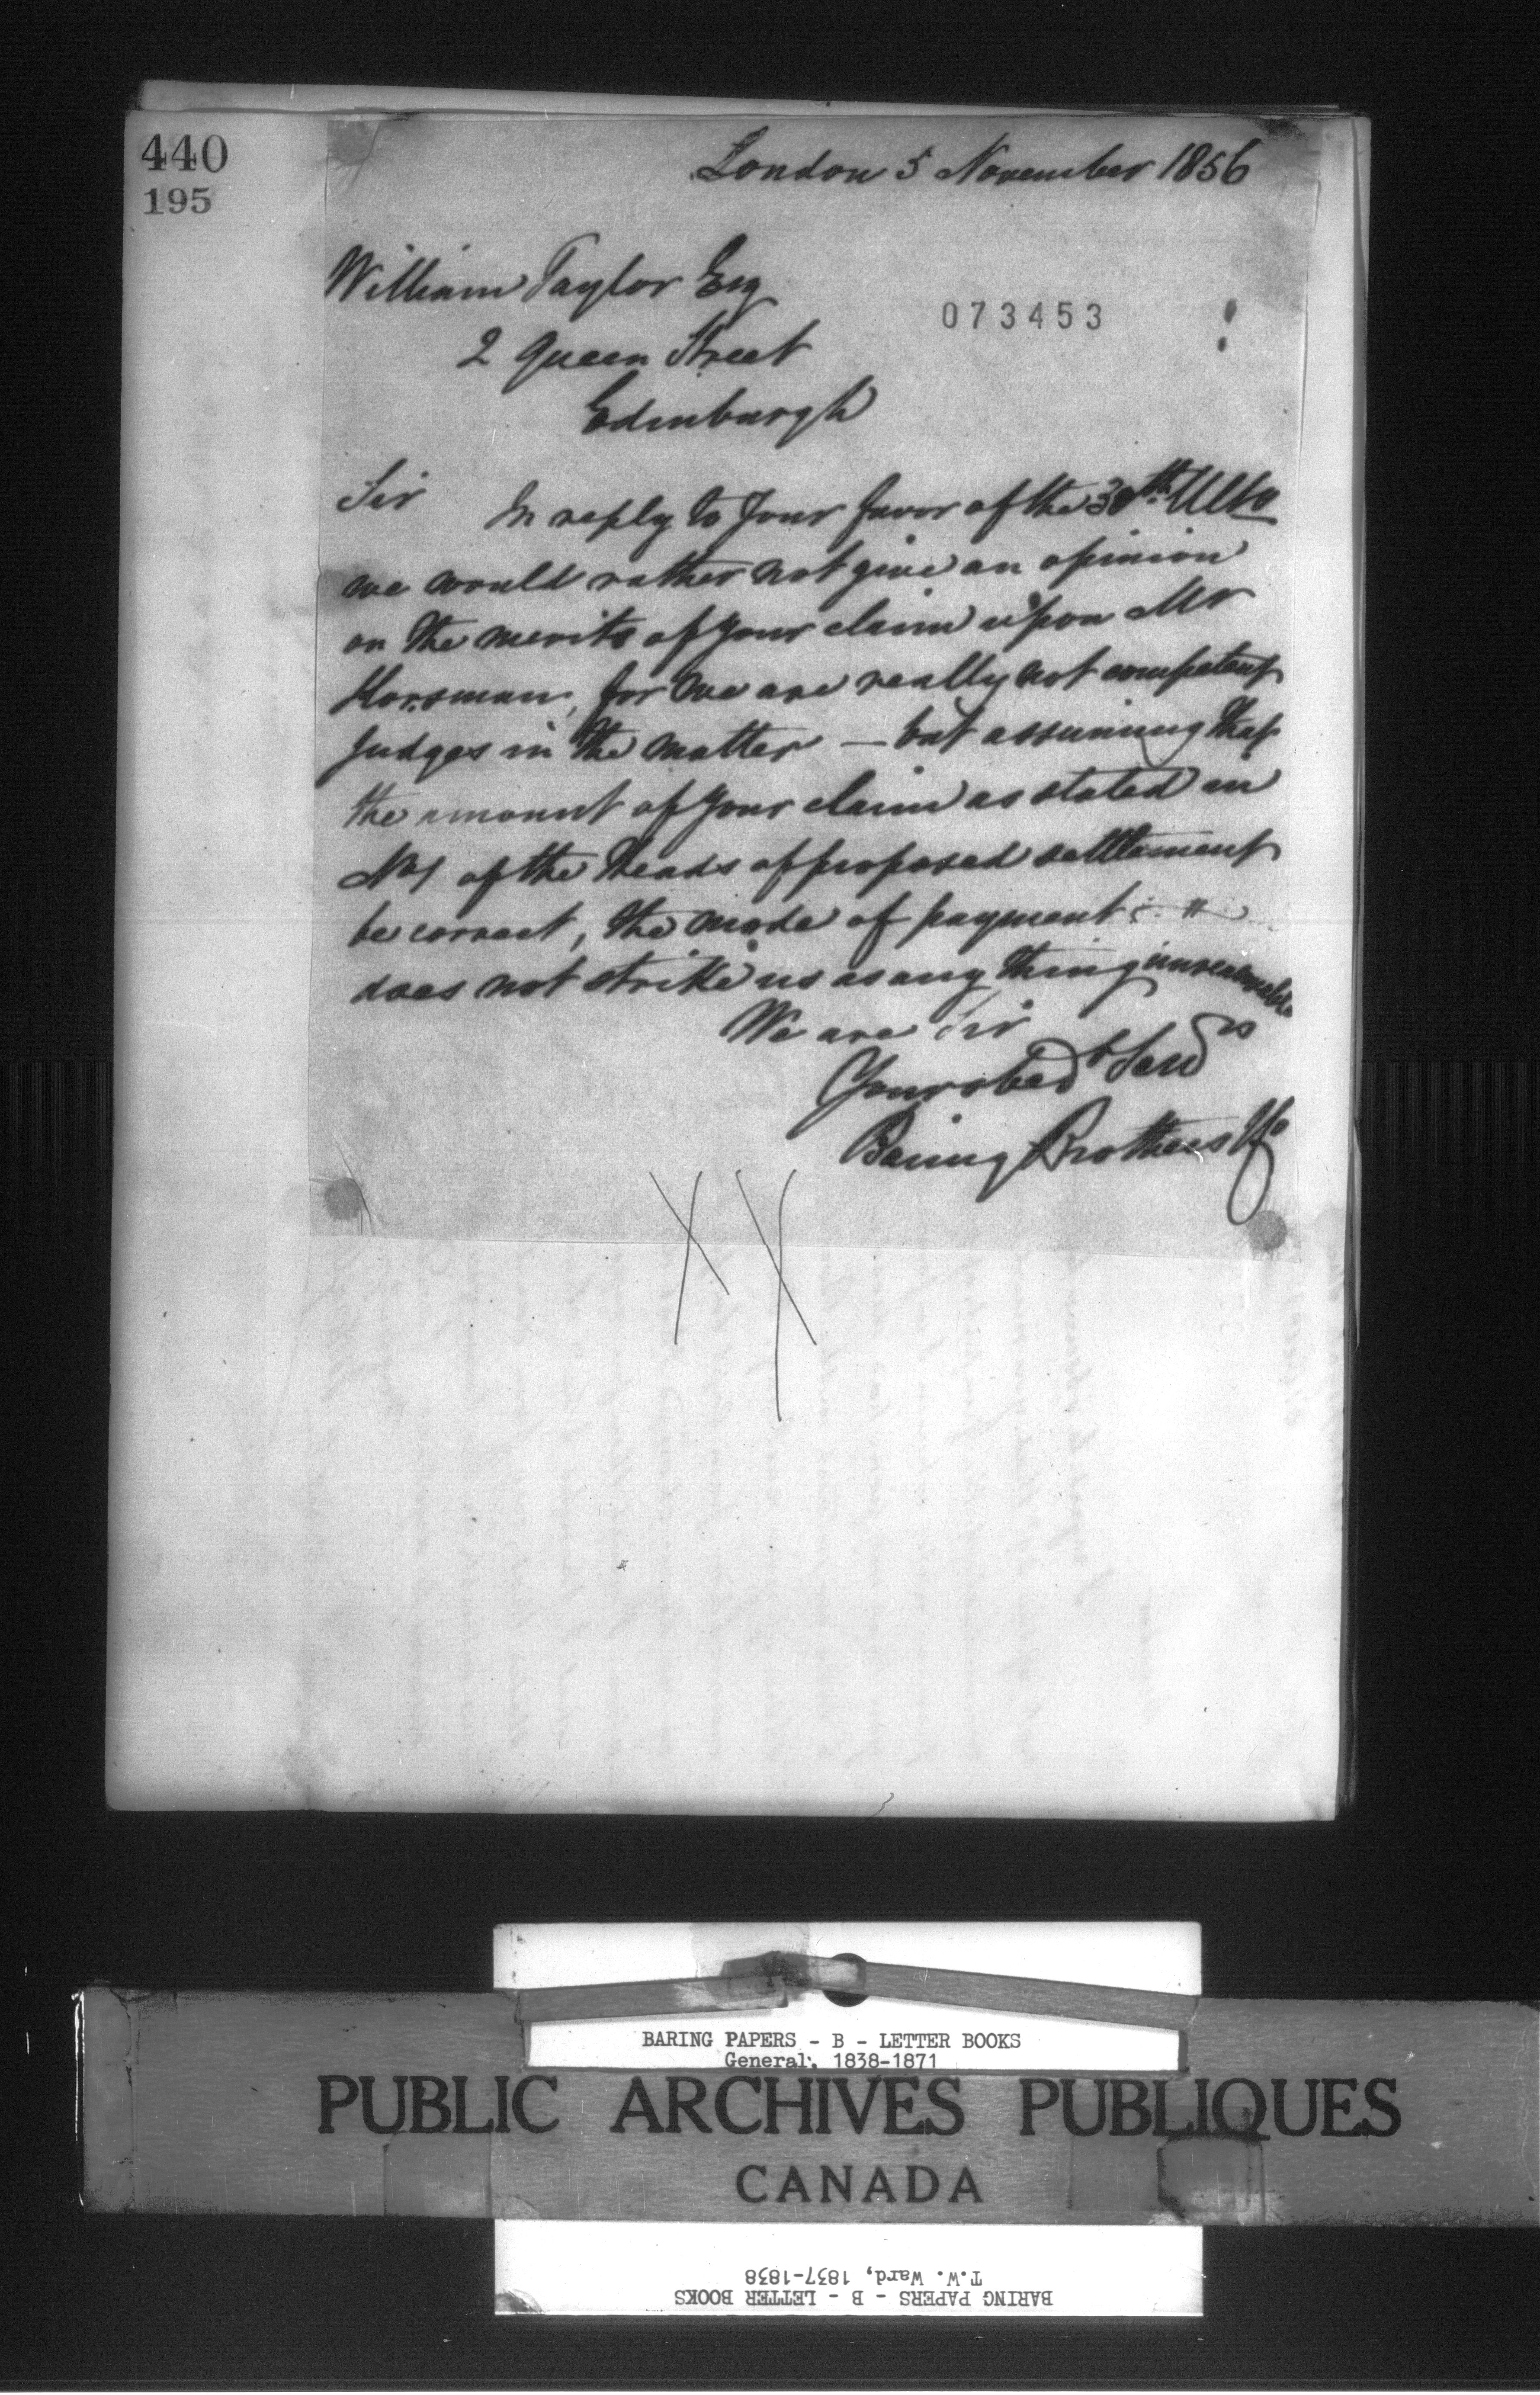 440
195
London 5 November 1856
William Taylor Esq
073453
2 Queen Street
Edinburgh
Sir In reply to Your favor of the 30th Ulto
we would rather not give an opinion
on the merits of your claim upon Mr
Horsman, for we are really not competent
judges in the matter — but assuming that
the amount of your claim as stated in
No 1 of the Heads of proposed settlement
be correct, the mode of payment
does not strike us as any thing unreasonable
We are Sir
Your obedt Servts
Baring Brothers & Co
BARING PAPERS - B - LETTER BOOKS
General, 1838-1871
PUBLIC ARCHIVES PUBLIQUES
CANADA
BARING PAPERS - B - LETTER BOOKS
T.W. Ward, 1837-1838